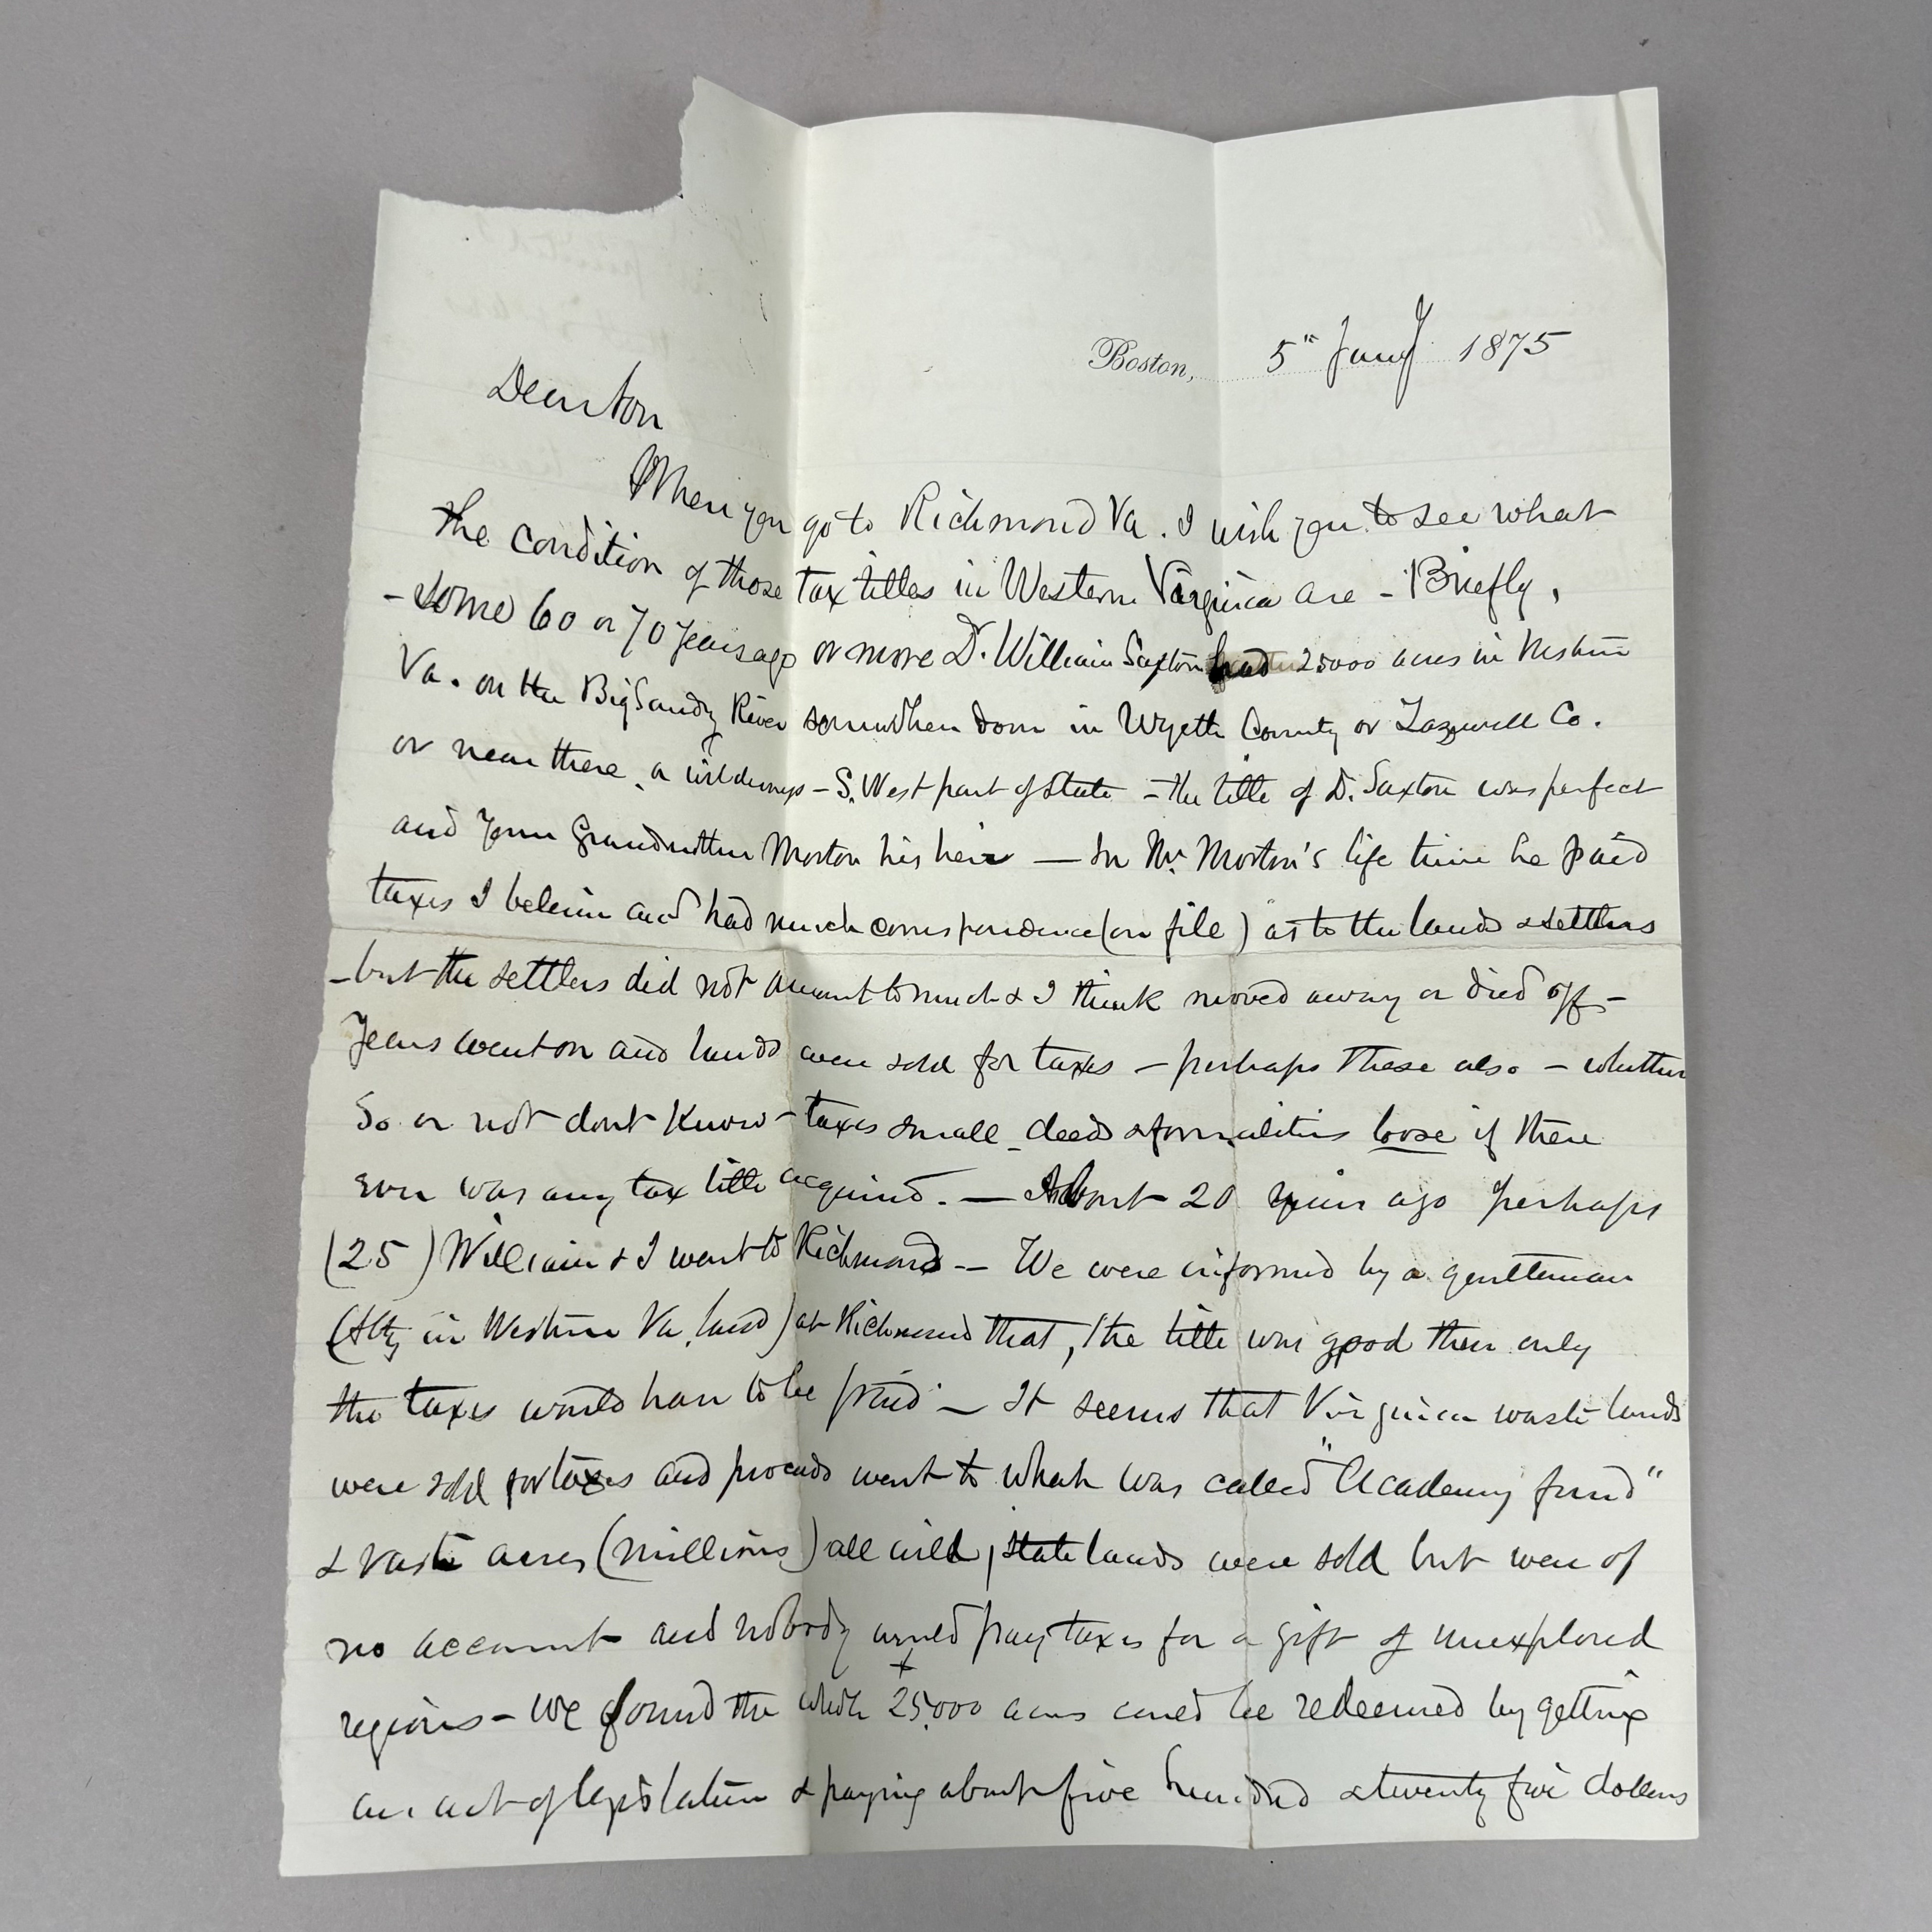 Boston, 5" Jany 1875
Dear Son
When you go to Richmond Va. I wish you to see what
the condition of those tax titles in Western Virginia are - Briefly,
- some 60 or 70 years ago or more Dr. William Saxton had 25000 acres in Western
Va. on the Big Sandy River somewhere down in Wyeth County or Tazwell Co.
or near there, a wilderness - S. West part of State - the title of Dr. Saxton was perfect
and your Grandmother Morton his heir — In Mr. Morton's life time he paid
taxes I believe and had much correspondence (on file) as to the lands & settlers
- but the settlers did not amount to much & I think moved away or died off -
Years went on and lands were sold for taxes - perhaps these also - whether
So or not dont know - taxes small - deeds & formalities loose if there
ever was any tax title acquired. — About 20 years ago perhaps
(25) William & I went to Richmond — We were informed by a gentleman
(Atty in Western Va. land) at Richmond that, the title was good then only
the taxes would have to be paid - It seems that Virginia waste lands
were sold for taxes and proceeds went to what was called "Academy fund"
& vast acres (millions) all wild, state lands were sold but were of
no account and nobody would pay taxes for a gift of unexplored
regions - we found the whole 25,000 acres could be redeemed by getting
an act of legislation & paying about five hundred & twenty five dollars